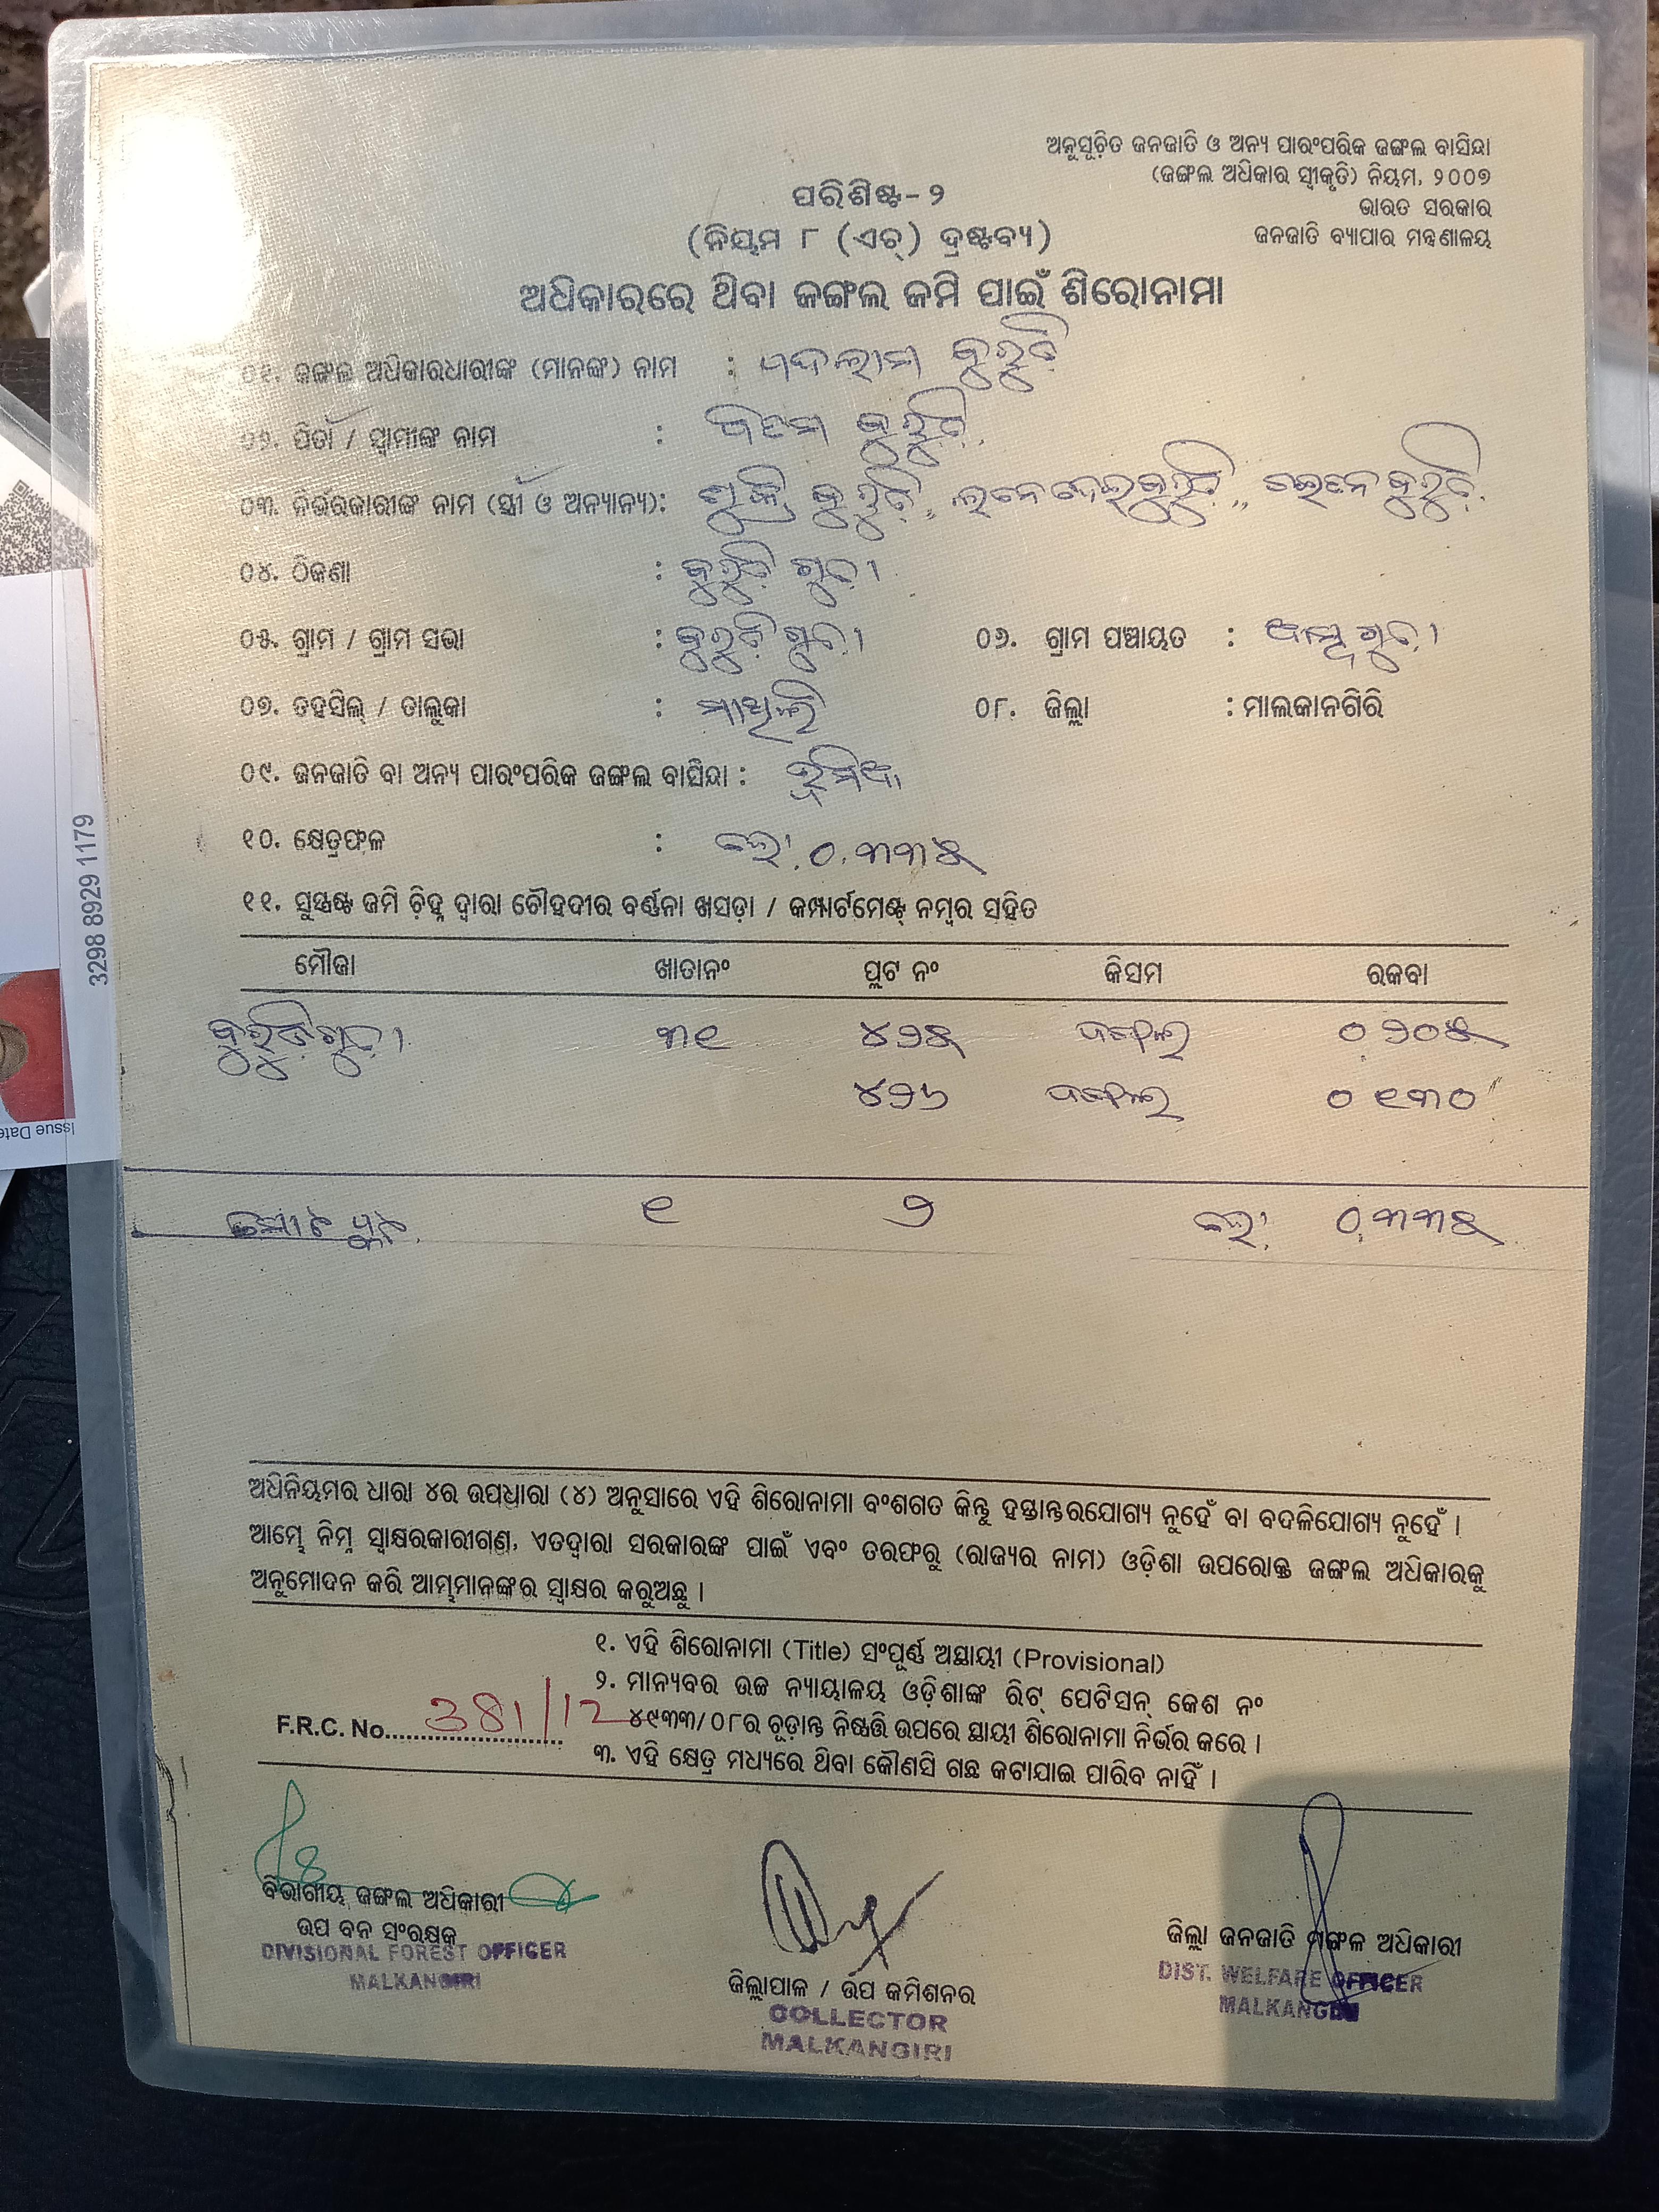 ଅନୁସୂଚିତ ଜନଜାତି ଓ ଅନ୍ୟ ପାରଂପରିକ ଜଙ୍ଗଲ ବାସିନ୍ଦା
(ଜଙ୍ଗଲ ଅଧିକାର ସ୍ୱୀକୃତି) ନିୟମ, ୨୦୦୭
ଭାରତ ସରକାର
ଜନଜାତି ବ୍ୟାପାର ମନ୍ତ୍ରଣାଳୟ
ପରିଶିଷ୍ଟ-୨
(ନିୟମ ୮ (ଏଚ୍) ଦ୍ରଷ୍ଟବ୍ୟ)
ଅଧିକାରରେ ଥିବା ଜଙ୍ଗଲ ଜମି ପାଇଁ ଶିରୋନାମା
୦୧. ଜଙ୍ଗଲ ଅଧିକାରଧାରୀଙ୍କ (ମାନଙ୍କ) ନାମ :
୦୨. ପିତା / ସ୍ୱାମୀଙ୍କ ନାମ :
୦୩. ନିର୍ଭରକାରୀଙ୍କ ନାମ (ସ୍ତ୍ରୀ ଓ ଅନ୍ୟାନ୍ୟ):
୦୪. ଠିକଣା :
୦୫. ଗ୍ରାମ / ଗ୍ରାମ ସଭା : ୦୬. ଗ୍ରାମ ପଞ୍ଚାୟତ :
୦୭. ତହସିଲ୍ / ତାଲୁକା : ମାଥିଲି ୦୮. ଜିଲ୍ଲା : ମାଲକାନଗିରି
୦୯. ଜନଜାତି ବା ଅନ୍ୟ ପାରଂପରିକ ଜଙ୍ଗଲ ବାସିନ୍ଦା : ଭୂମିଆ
୧୦. କ୍ଷେତ୍ରଫଳ : ହେ. ୦.୩୩୫
୧୧. ସୁସ୍ପଷ୍ଟ ଜମି ଚିହ୍ନ ଦ୍ୱାରା ଚୌହଦୀର ବର୍ଣ୍ଣନା ଖସଡ଼ା / କମ୍ପାର୍ଟମେଣ୍ଟ୍ ନମ୍ବର ସହିତ
ମୌଜା ଖାତାନଂ ପ୍ଲଟ ନଂ କିସମ ରକବା
୩୧ ୪୨୫ ଜଙ୍ଗଲ ୦.୨୦୫
୪୨୬ ଜଙ୍ଗଲ ୦.୧୩୦
ମୋଟ ପ୍ଲଟ ୧ ୨ ହେ. ୦.୩୩୫
ଅଧିନିୟମର ଧାରା ୪ର ଉପଧାରା (୪) ଅନୁସାରେ ଏହି ଶିରୋନାମା ବଂଶଗତ କିନ୍ତୁ ହସ୍ତାନ୍ତରଯୋଗ୍ୟ ନୁହେଁ ବା ବଦଳିଯୋଗ୍ୟ ନୁହେଁ ।
ଆମ୍ଭେ ନିମ୍ନ ସ୍ୱାକ୍ଷରକାରୀଗଣ, ଏତଦ୍ୱାରା ସରକାରଙ୍କ ପାଇଁ ଏବଂ ତରଫରୁ (ରାଜ୍ୟର ନାମ) ଓଡ଼ିଶା ଉପରୋକ୍ତ ଜଙ୍ଗଲ ଅଧିକାରକୁ
ଅନୁମୋଦନ କରି ଆମ୍ଭମାନଙ୍କର ସ୍ୱାକ୍ଷର କରୁଅଛୁ ।
୧. ଏହି ଶିରୋନାମା (Title) ସଂପୂର୍ଣ୍ଣ ଅସ୍ଥାୟୀ (Provisional)
୨. ମାନ୍ୟବର ଉଚ୍ଚ ନ୍ୟାୟାଳୟ ଓଡ଼ିଶାଙ୍କ ରିଟ୍ ପେଟିସନ୍ କେଶ ନଂ
୪୯୩୩/୦୮ର ଚୂଡ଼ାନ୍ତ ନିଷ୍ପତ୍ତି ଉପରେ ସ୍ଥାୟୀ ଶିରୋନାମା ନିର୍ଭର କରେ ।
F.R.C. No. 381/12
୩. ଏହି କ୍ଷେତ୍ର ମଧ୍ୟରେ ଥିବା କୌଣସି ଗଛ କଟାଯାଇ ପାରିବ ନାହିଁ ।
ବିଭାଗୀୟ ଜଙ୍ଗଲ ଅଧିକାରୀ
ଉପ ବନ ସଂରକ୍ଷକ
DIVISIONAL FOREST OFFICER
MALKANGIRI
ଜିଲ୍ଲାପାଳ / ଉପ କମିଶନର
COLLECTOR
MALKANGIRI
ଜିଲ୍ଲା ଜନଜାତି ମଙ୍ଗଳ ଅଧିକାରୀ
DIST. WELFARE OFFICER
MALKANGIRI
3298 8929 1179
Issue Date